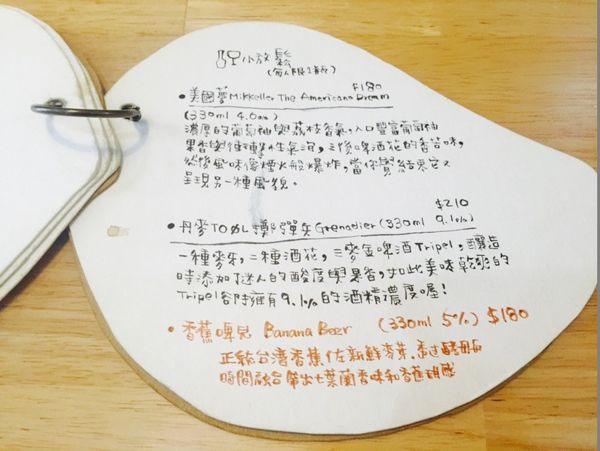 小放鬆
(每人限1瓶)
$180
•美國夢Mikkeller The Americana Dream
(330ml 4.0%)
濃厚的葡萄柚與荔枝香氣,入口豐富葡萄柚
果香與衝擊性氣泡,之後啤酒花的香苦味,
然後風味像煙火般爆炸,當你覺結束它又
呈現另一種風貌。
$210
•丹麥TOØL 擲彈兵Grenadier(330ml 9.1%)
一種麥芽,二種酒花,三麥金啤酒Tripel,釀造
時添加迷人的酸度與果香,如此美味乾爽的
Tripel卻擁有9.1%的酒精濃度喔!
•香蕉啤兒 Banana Beer (330ml 5%) $180
正統台灣香蕉佐新鮮麥芽,透過酵母長
時間融合帶出七葉蘭香味和香蕉甜感